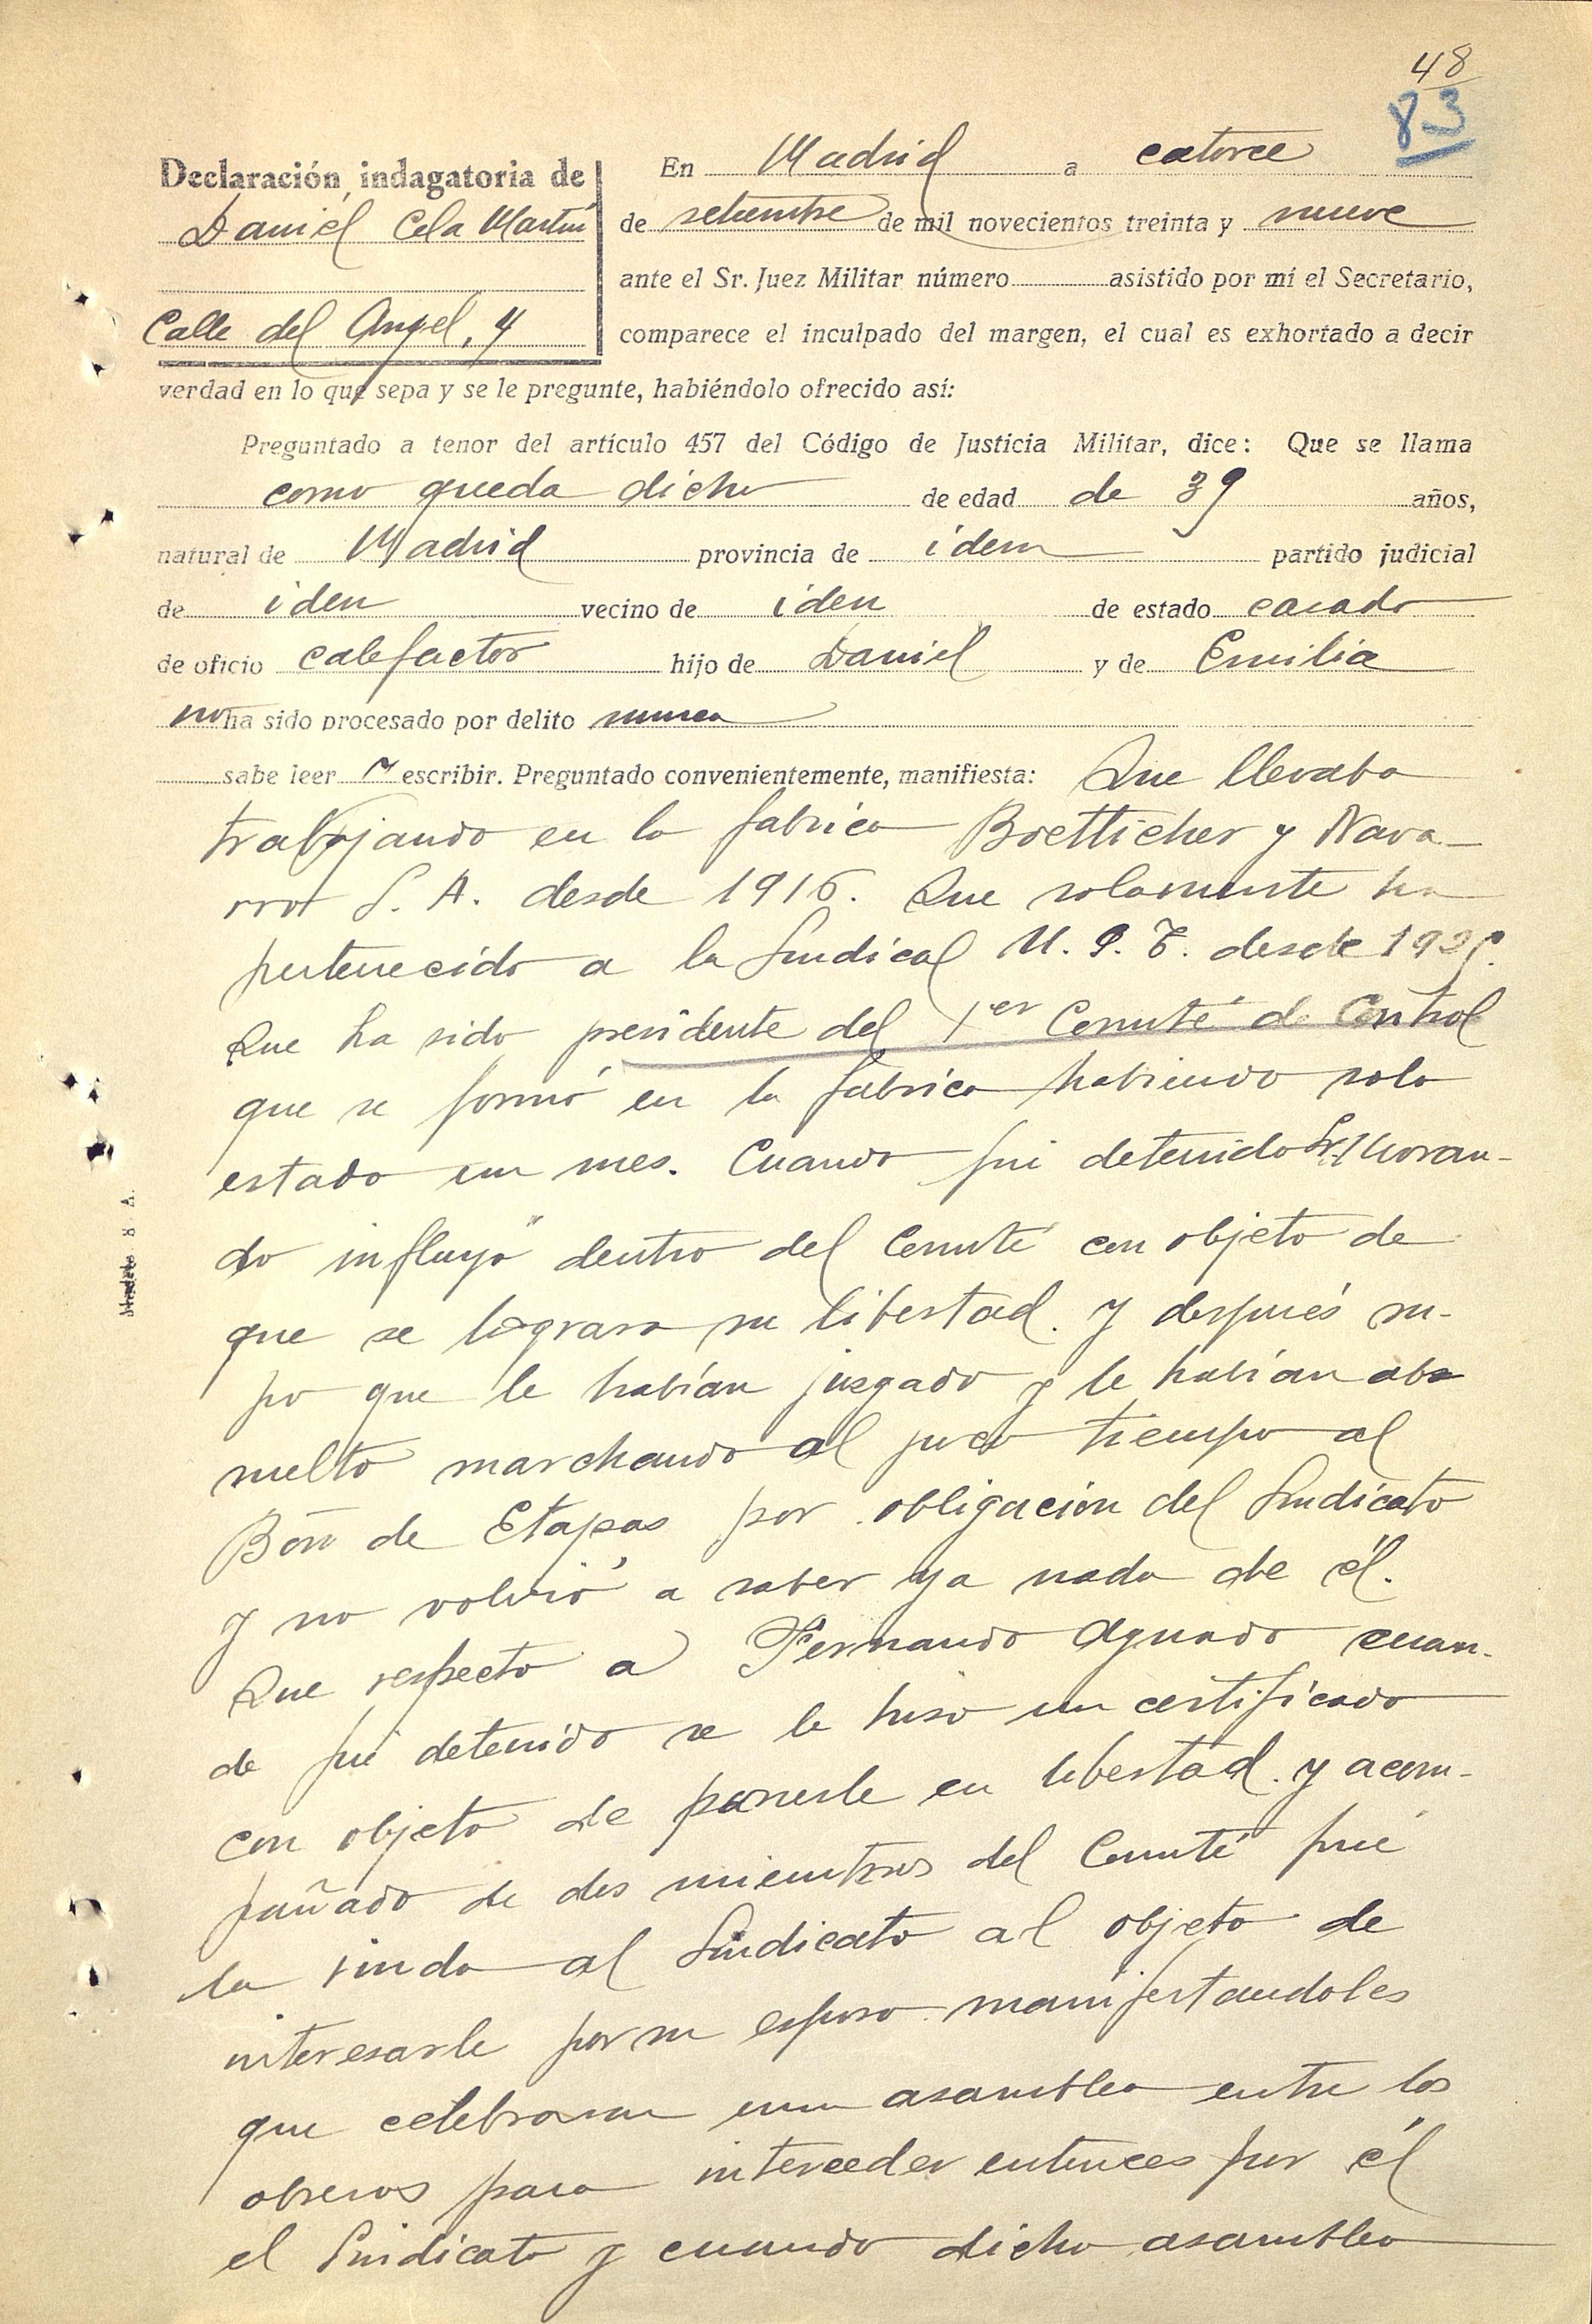 48
83
Declaración indagatoria de
Daniel Cela Martín
Calle del Angel, 4
En Madrid a catorce
de setiembre de mil novecientos treinta y nueve
ante el Sr. Juez Militar número asistido por mí el Secretario,
comparece el inculpado del margen, el cual es exhortado a decir
verdad en lo que sepa y se le pregunte, habiéndolo ofrecido así:
Preguntado a tenor del artículo 457 del Código de Justicia Militar, dice: Que se llama
como queda dicho de edad de 39 años,
natural de Madrid provincia de idem partido judicial
de iden vecino de iden de estado casado
de oficio calefactor hijo de Daniel y de Emilia
no ha sido procesado por delito nunca
sabe leer y escribir. Preguntado convenientemente, manifiesta: Que llevaba
trabajando en la fabrica Boetticher y Nava-
rro S. A. desde 1916. Que solamente ha
pertenecido a la Sindical U. G. T. desde
Que ha sido presidente del 1er Comité de Control
que se formó en la fabrica habiendo solo
estado un mes. Cuando fui detenido Sr. Moran-
do influyó dentro del Comité con objeto de
que se lograra su libertad. Y después su-
po que le habían juzgado y le habían abs
suelto marchando al poco tiempo al
Bón de Etapas por obligación del Sindicato
y no volvió a saber ya nada de él.
Que respecto a Fernando Aguado cuan-
do fué detenido se le hiso un certificado
con objeto de ponerle en libertad. y acom-
pañado de dos miembros del Comité fué
la viuda al Sindicato al objeto de
interesarle por su esposo manifestandoles
que celebraran una asamblea entre los
obreros para interceder entonces por él
el Sindicato y cuando dicha asamblea